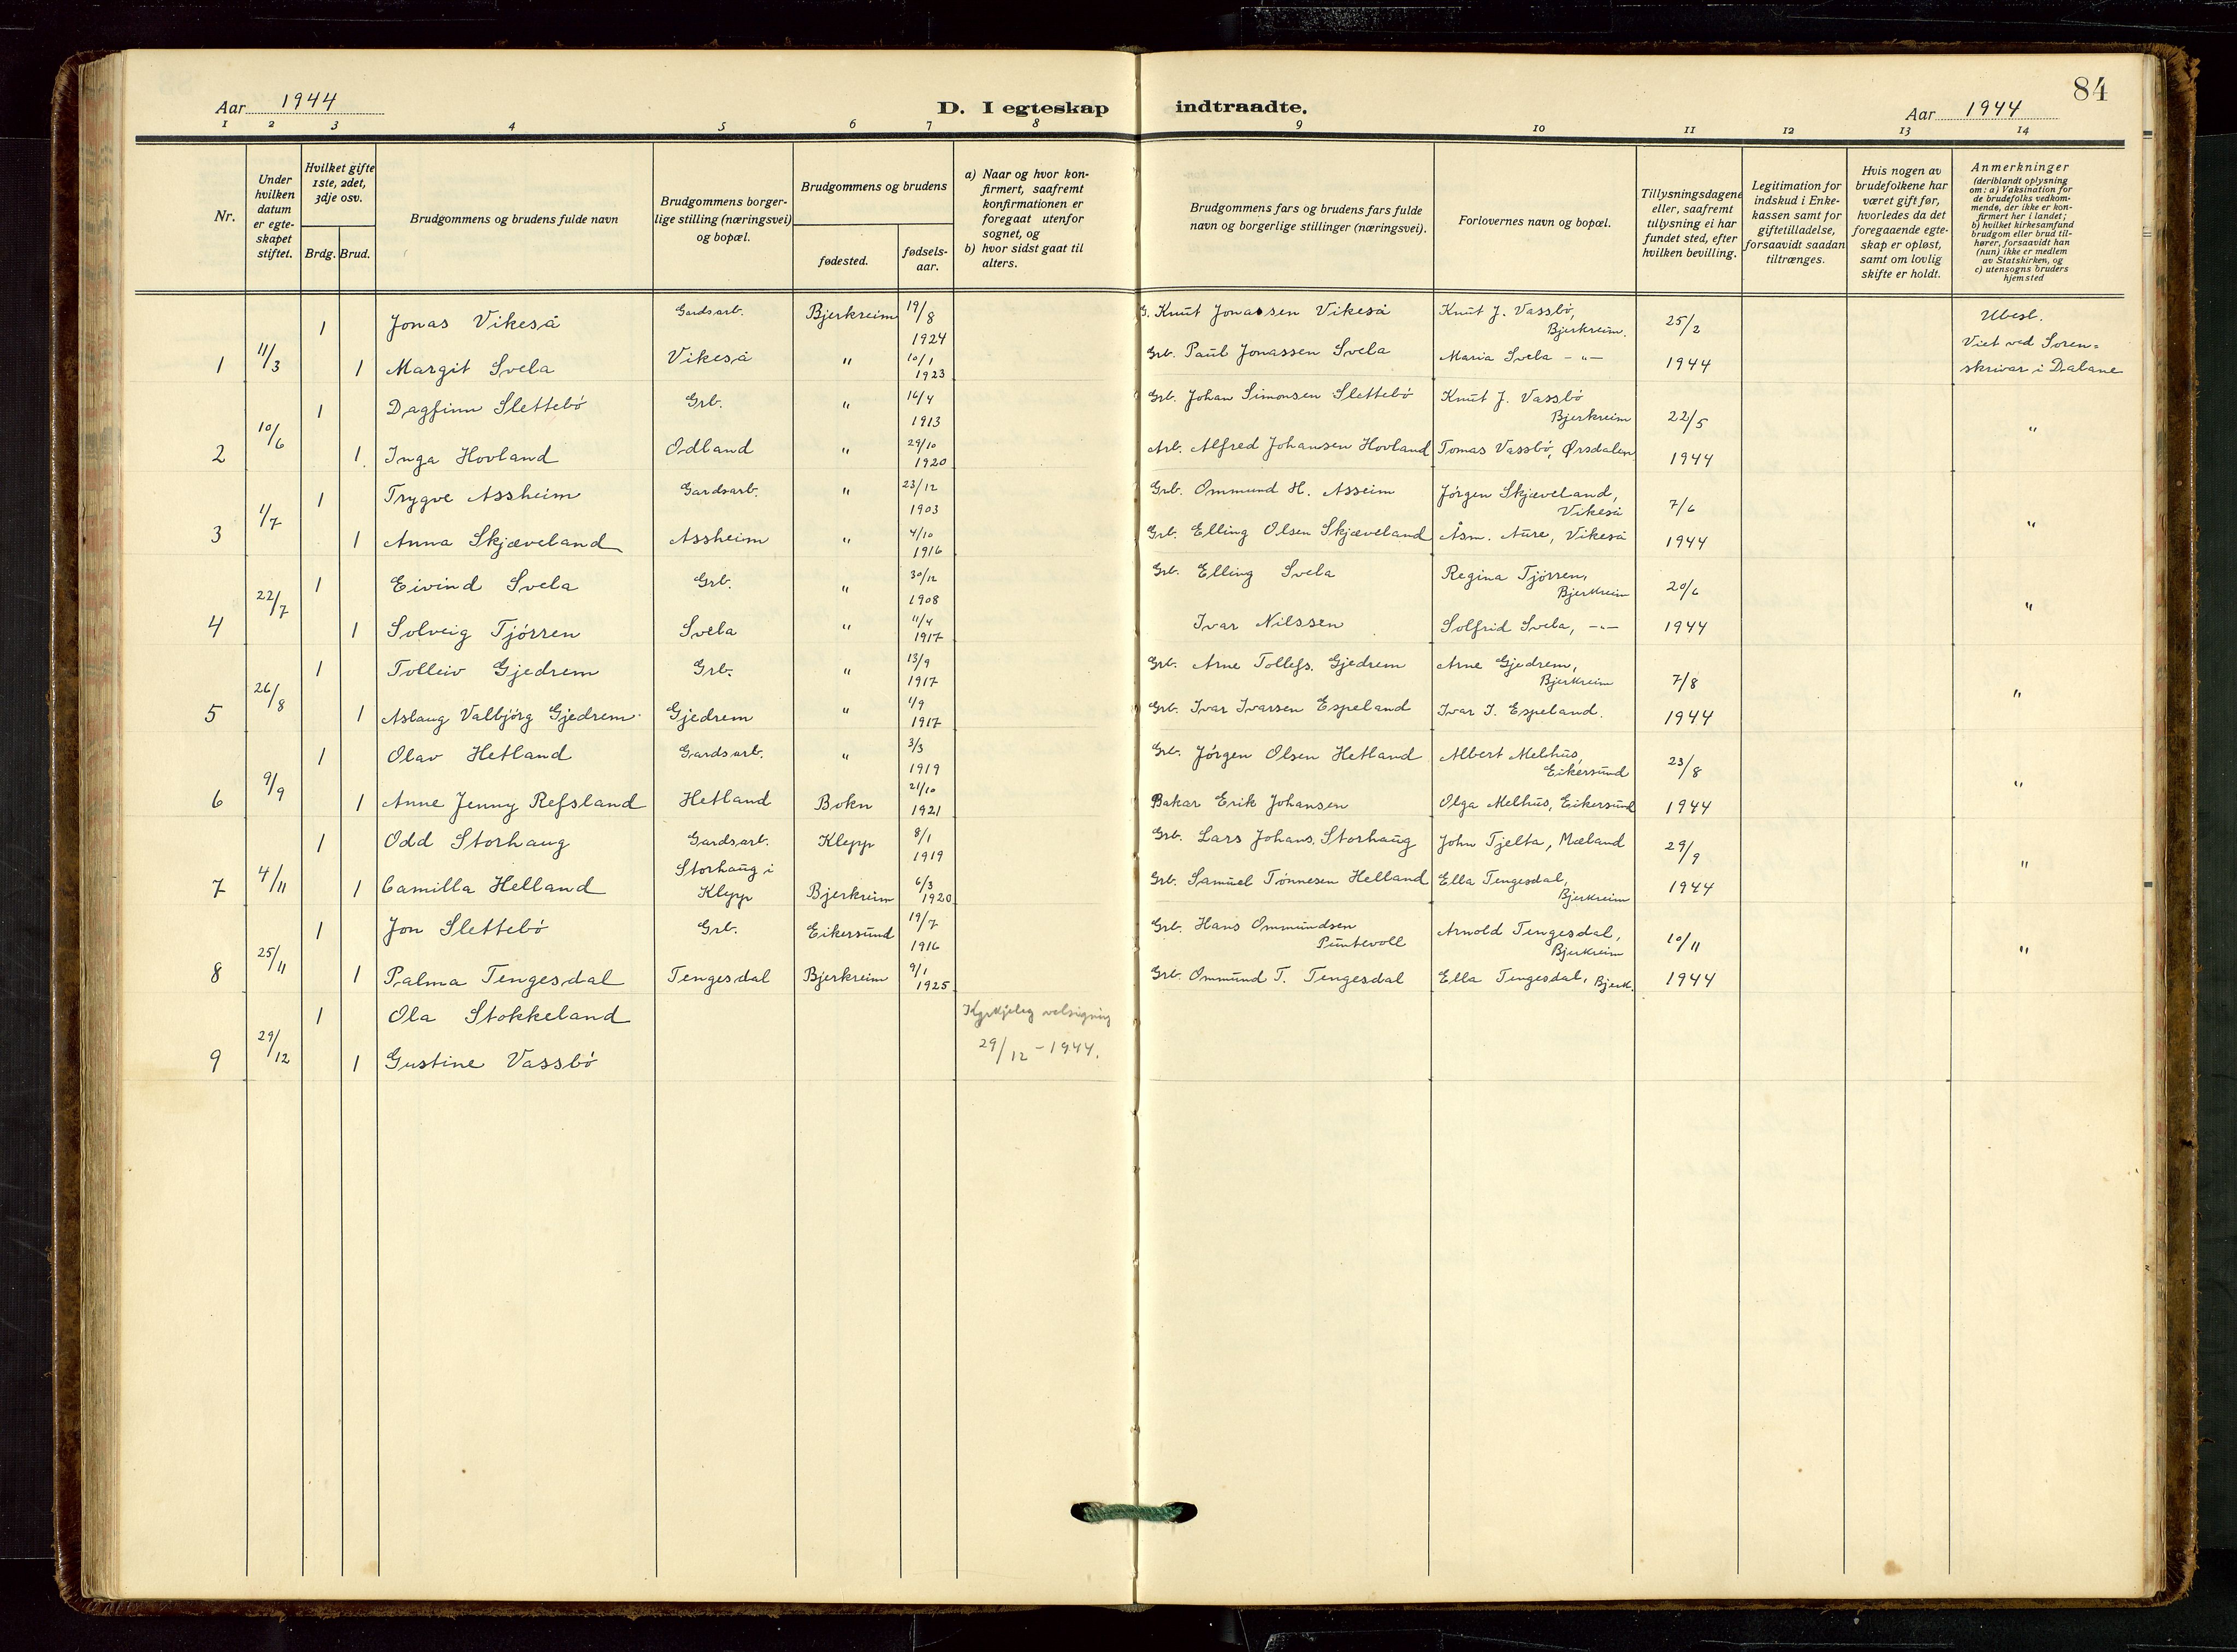 84
Aar 1944
D. I egteskap indtraadte.
Aar 1944
1 2 3 4 5 6 7 8 9 10 11 12 13 14
Nr.
Under hvilken datum er egte-skapet stiftet.
Hvilket gifte 1ste, 2det, 3dje osv.
Brdg. Brud.
Brudgommens og brudens fulde navn
Brudgommens borger-lige stilling (næringsvei) og bopæl.
Brudgommens og brudens
fødested.
fødsels-aar.
a) Naar og hvor kon-firmert, saafremt konfirmationen er foregaat utenfor sognet, og
b) hvor sidst gaat til alters.
Brudgommens fars og brudens fars fulde navn og borgerlige stillinger (næringsvei).
Forlovernes navn og bopæl.
Tillysningsdagene eller, saafremt tillysning ei har fundet sted, efter hvilken bevilling.
Legitimation for indskud i Enke-kassen samt for giftetilladelse, forsaavidt saadan tiltrænges.
Hvis nogen av brudefolkene har været gift før, hvorledes da det foregaaende egte-skap er opløst, samt om lovlig skifte er holdt.
Anmerkninger
(deriblandt oplysning om: a) Vaksination for de brudefolks vedkom-mende, der ikke er kon-firmert her i landet; b) hvilket kirkesamfund brudgom eller brud til-hører, forsaavidt han (hun) ikke er medlem av Statskirken, og c) utensogns bruders hjemsted
1 Jonas Vikeså Gardsarb. Bjerkreim 19/8 1924 G. Knut Jonassen Vikeså Knut J. Vassbö, Bjerkreim. 25/2 Ubesl.
1 11/3 1 Margit Svela Vikeså " 10/1 1923 Grb. Paul Jonassen Svela Maria Svela -"- 1944 Viet ved Soren=skrivar i Dalane
1 Dagfinn Slettebö Grb. " 16/4 1913 Grb. Johan Simonsen Slettebö Knut J. Vassbö Bjerkreim 22/5 "
2 10/6 1 Inga Hovland Odland " 29/10 1920 Arb. Alfred Johansen Hovland Tomas Vassbö, Ørsdalen 1944
1 Trygve Assheim Gardsarb. " 23/12 1903 Grb. Ommund H. Asseim Jörgen Skjæveland, Vikeså 7/6 "
3 1/7 1 Anna Skjæveland Assheim " 4/10 1916 Grb. Elling Olsen Skjæveland Åsm. Aure, Vikeså 1944
1 Eivind Svela Grb. " 30/12 1908 Grb. Elling Svela Regina Tjörren, Bjerkreim 20/6 "
4 22/7 1 Solveig Tjörren Svela " 11/4 1917 Ivar Nilssen Solfrid Svela, -"- 1944
1 Tolleiv Gjedrem Grb. " 13/9 1917 Grb. Arne Tollefs. Gjedrem Arne Gjedrem, Bjerkreim 7/8 "
5 26/8 1 Aslaug Valbjörg Gjedrem Gjedrem " 1/9 1917 Grb. Ivar Ivarsen Espeland Ivar I. Espeland. 1944
1 Olav Hetland Gardsarb. " 3/3 1919 Grb. Jörgen Olsen Hetland Albert Melhus, Eikersund 23/8 "
6 9/9 1 Anne Jenny Refsland Hetland Bokn 21/10 1921 Bakar Erik Johansen Olga Melhus, Eikersund 1944
1 Odd Storhaug Gardsarb. Klepp 8/1 1919 Grb. Lars Johans. Storhaug John Tjelta, Mæland 29/9 "
7 4/11 1 Camilla Helland Storhaug i Klepp Bjerkreim 6/3 1920 Grb. Samuel Tönnesen Helland Ella Tengesdal, Bjerkreim 1944
1 Jon Slettebö Grb. Eikersund 19/7 1916 Grb. Hans Ommundsen Puntevoll Arnold Tengesdal, Bjerkreim 10/11 "
8 25/11 1 Palma Tengesdal Tengesdal Bjerkreim 9/1 1925 Grb. Ommund T. Tengesdal Ella Tengesdal, Bjerk. 1944
1 Ola Stokkeland Kyrkjeleg velsigning
9 29/12 1 Gustine Vassbö 29/12 - 1944.